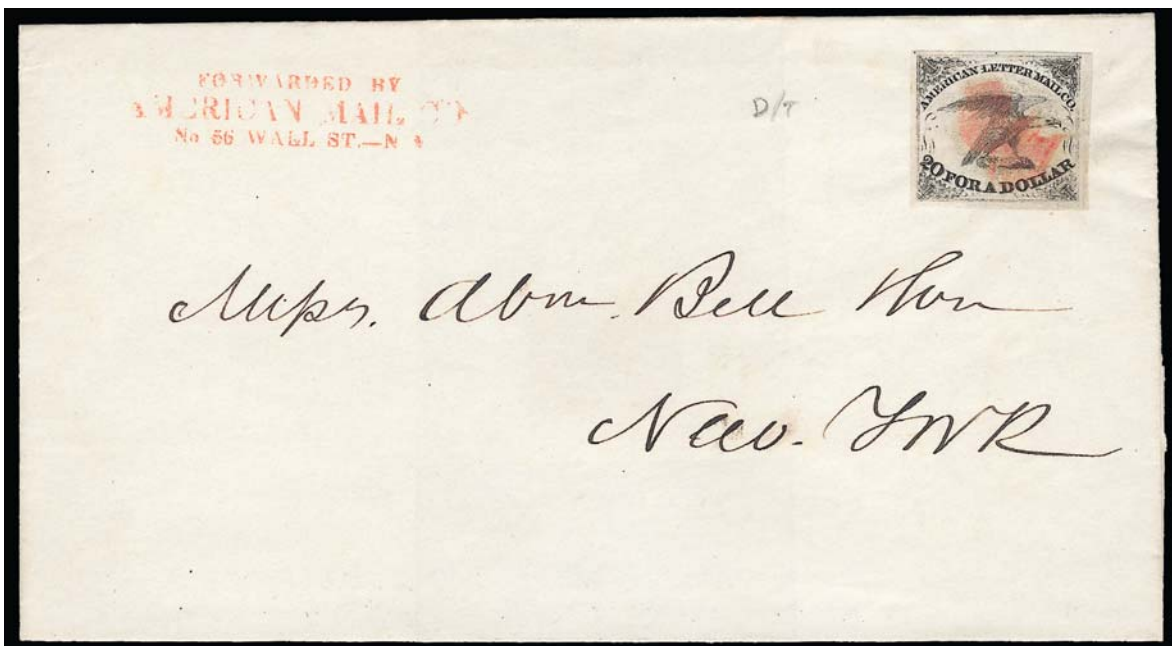 FORWARDED BY
AMERICAN MAIL CO
No 56 WALL ST.—N Y
D/T
AMERICAN LETTER MAIL CO.
20 FOR A DOLLAR
Messrs. Abm. Bell
New. York